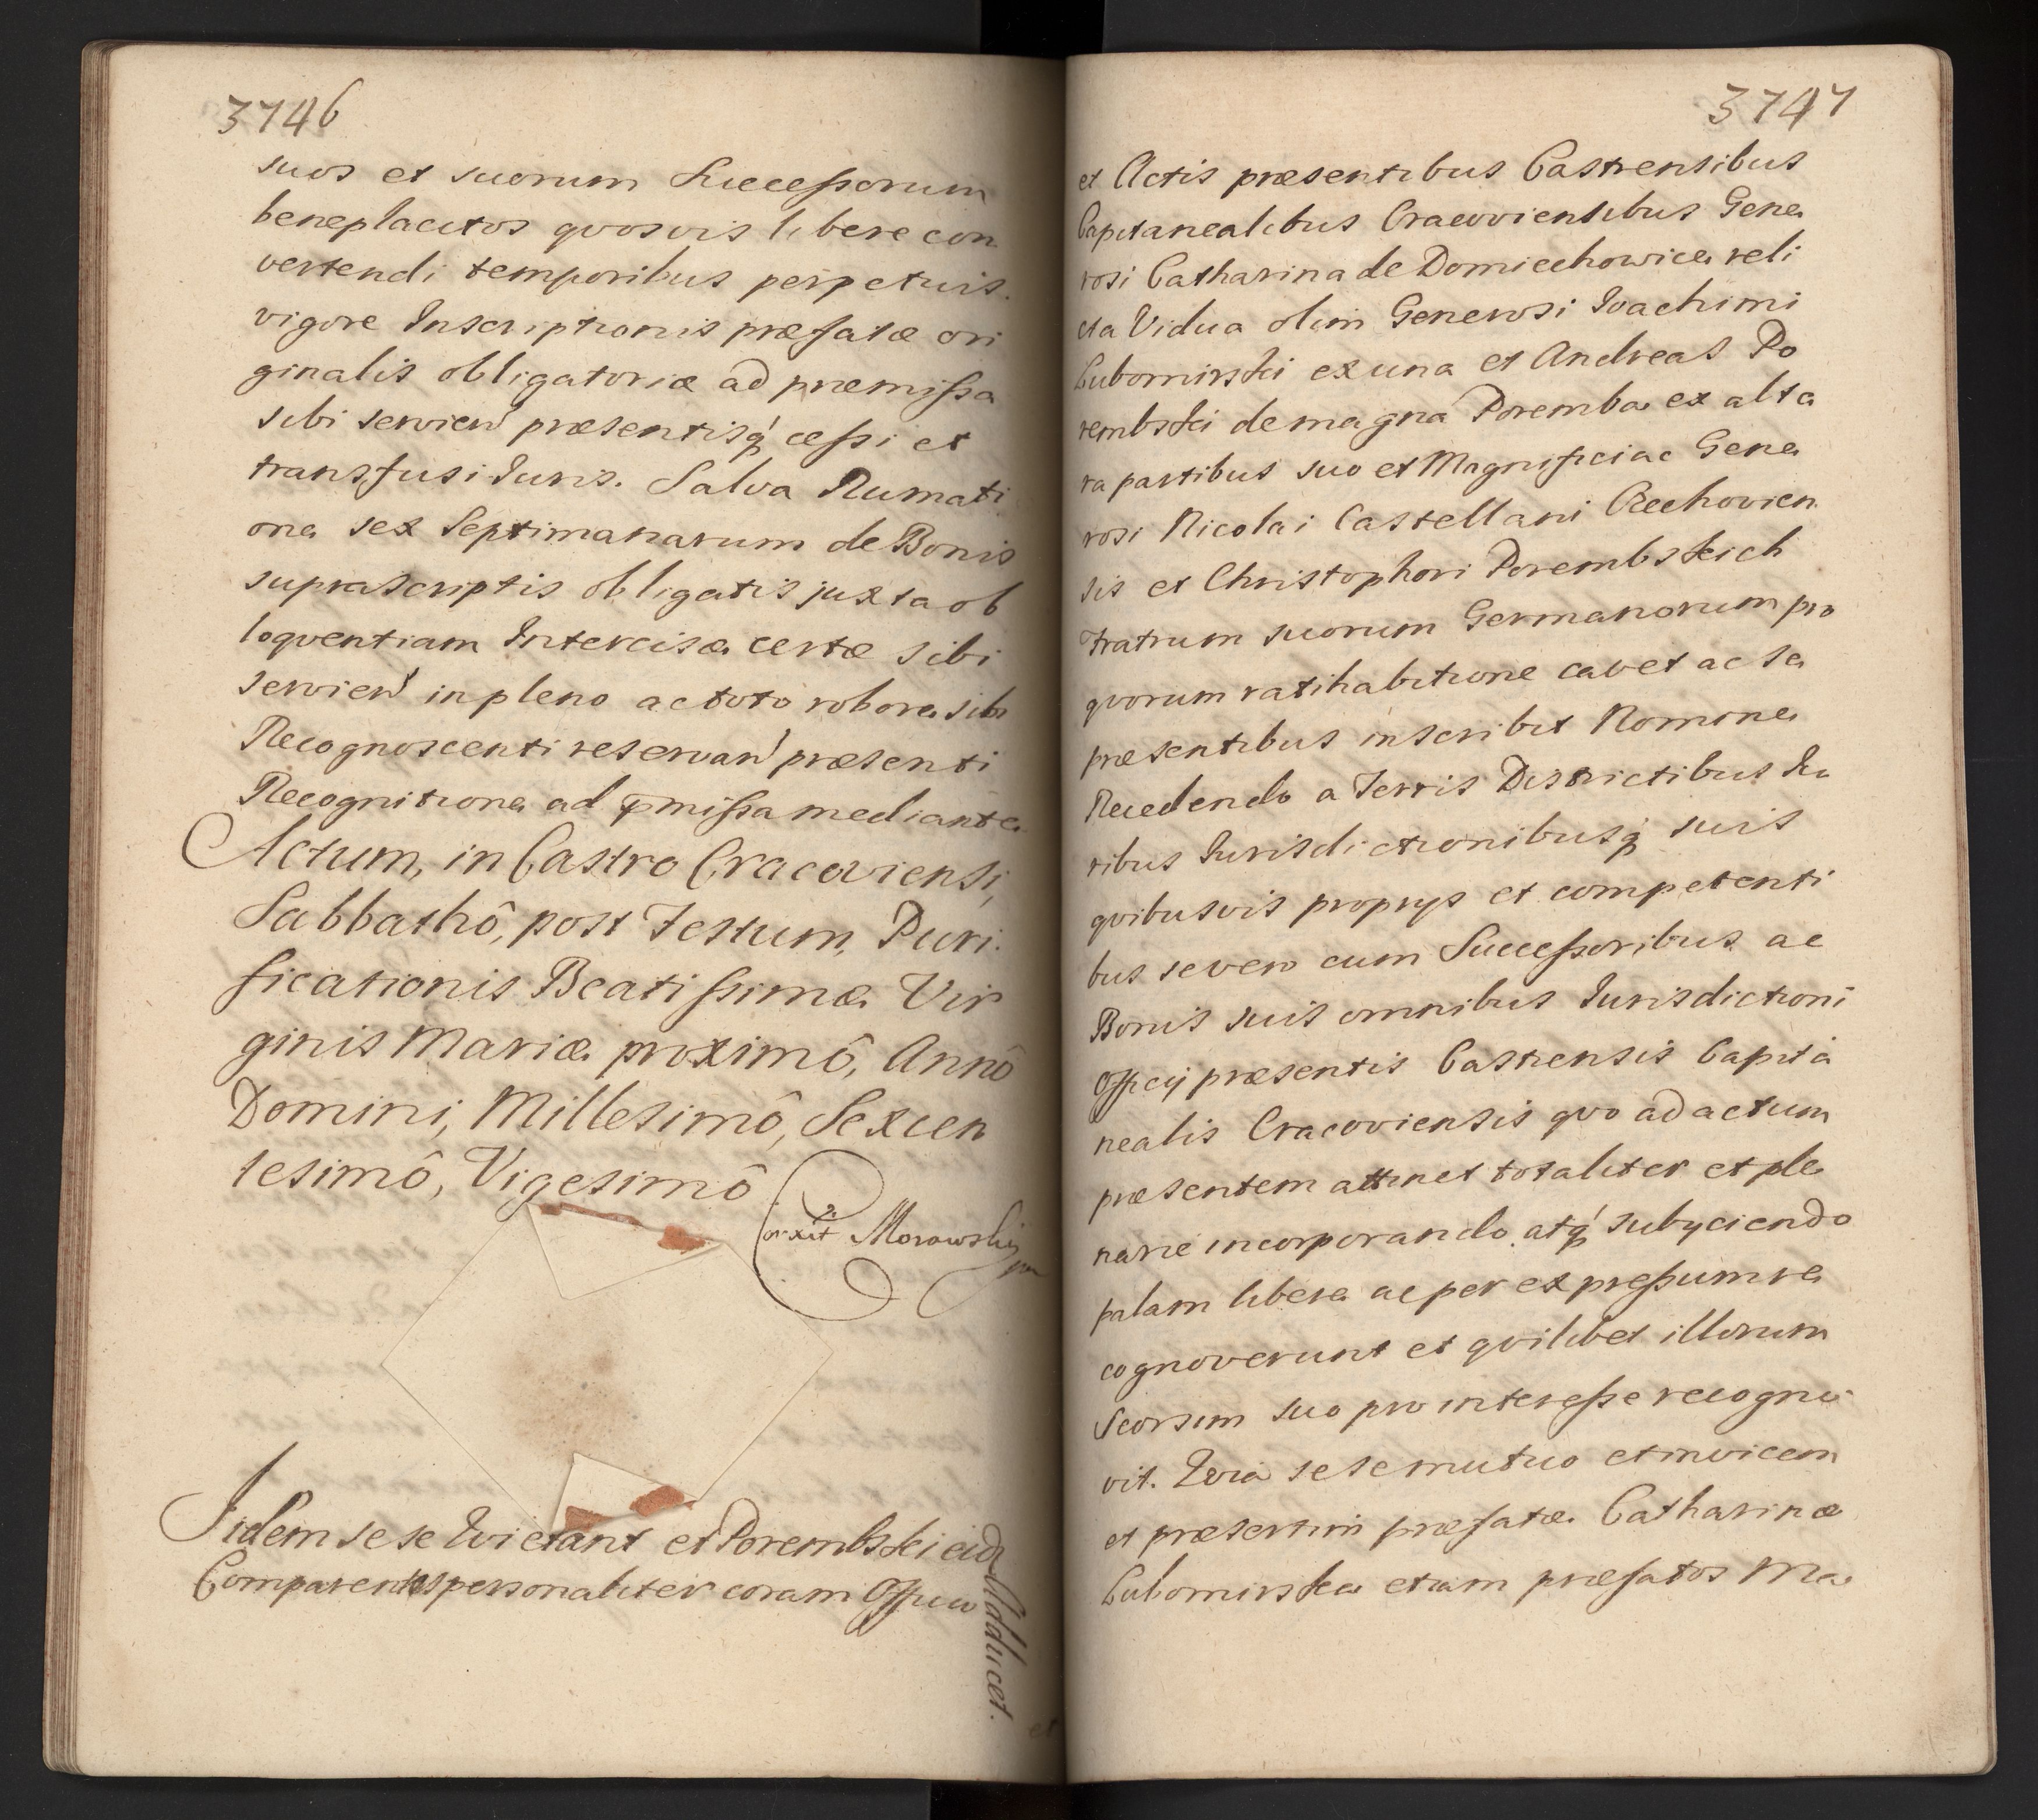 3746
suos et suorum Successorum
beneplacitos qvosvis libere con
vertendi temporibus perpetuis.
vigore Inscriptionis præfatæ ori
ginalis obligatoriæ ad præmissa
sibi servien præsentisq cessi et
transfusi Iuris. Salva Rumati
one sex Septimanarum de Bonis
suprascriptis obligatis juxta ob
loqventiam Intercisæ certæ sibi
servien in pleno ac toto robore sibi
Recognoscenti reservan præsenti
Recognitione ad pmissa mediante
Actum, in Castro Cracoviensi,
Sabbathô, post Festum, Puri
ficationis Beatissimæ Vir
ginis Mariæ proximô, Annô
Domini, Millesimô, Sexcen
tesimô, Vigesimô
Corxit Morawski
Iidem sese Evictant et Porembski eid
Adducet.
Comparentes personaliter coram Officio
et
3747
et Actis præsentibus Castrensibus
Capitanealibus Cracoviensibus Gene
rosi Catharina de Domiechowice reli
cta Vidua olim Generosi Ioachimi
Lubomirski ex una et Andreas Po
rembski de magna Poremba ex alte
ra partibus suo et Magnifici ac Gene
rosi Nicolai Castellani Czechovien
sis et Christophori Porembskich
Fratrum suorum Germanorum pro
qvorum ratihabitione cavet ac se
præsentibus inscribit Nomine
Recedendo a Terris Districtibus Iu
ribus Iurisdictionibusq suis
qvibusvis proprys et competenti
bus se vero cum Successoribus ac
Bonis suis omnibus Iurisdictioni
Officij præsentis Castrensis Capita
nealis Cracoviensis qvo ad actum
præsentem attinet totaliter et ple
narie incorporando atq subyciendo
palam libere ac per expressum re
cognoverunt et qvilibet illorum
seorsim suo pro interesse recogno
vit. Qvia sese mutuo et invicem
et præsertim præfatæ Catharinæ
Lubomirska etiam præfatos Ma